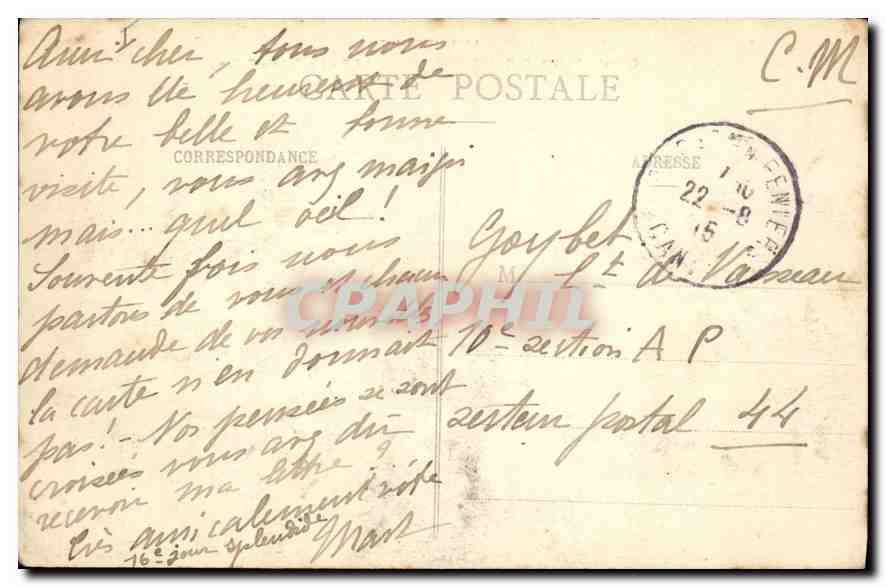 Ami cher, tous nous
avons été heureux de
votre belle et bonne
visite, vous avez maigri
mais... quel œil!
Souvente fois nous
parlons de vous et chacun
demande de vos nouvelles
la carte n'en donnait
pas! - Nos pensées se sont
croisées vous avez dû
recevoir ma lettre?
très amicalement vôtre
16e jour splendide
C.M
CARTE POSTALE
CORRESPONDANCE
ADRESSE
22 -8
15
Goybet
M
Lt de Vaisseau
10e section A P
secteur postal 44
CPAPHIL